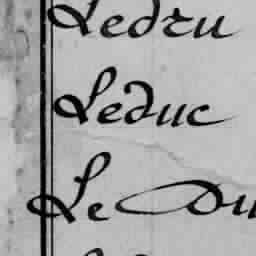 Ledru
Leduc
Le Du